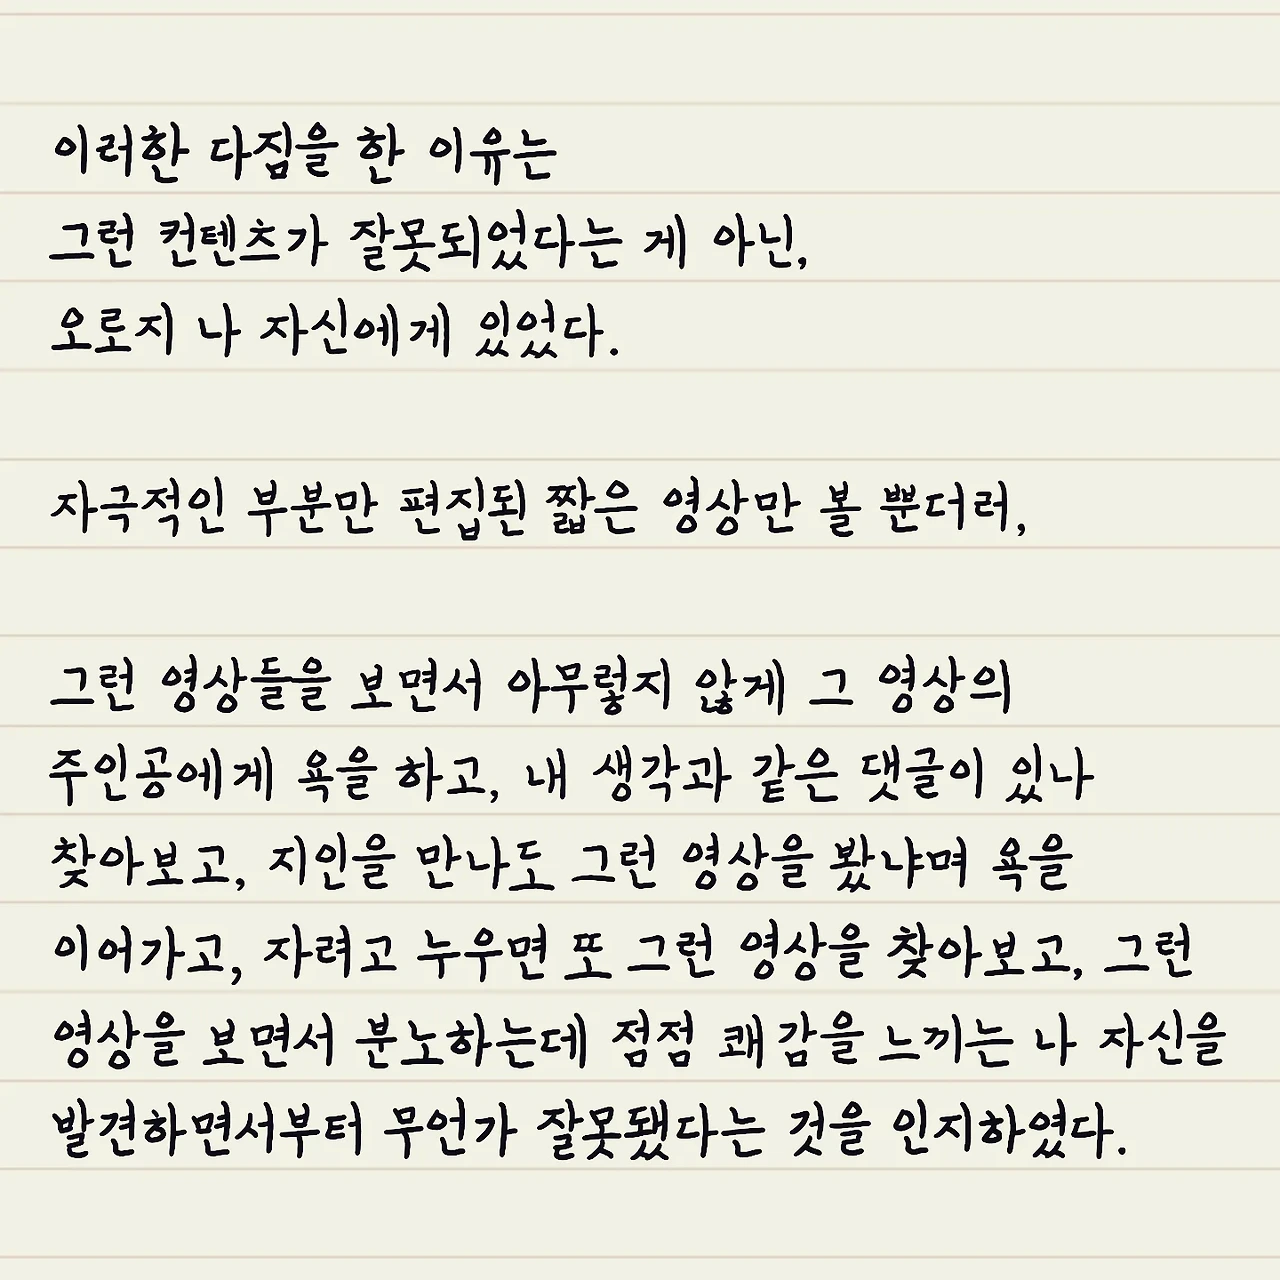 이러한 다짐을 한 이유는
그런 컨텐츠가 잘못되었다는 게 아닌,
오로지 나 자신에게 있었다.
자극적인 부분만 편집된 짧은 영상만 볼 뿐더러,
그런 영상들을 보면서 아무렇지 않게 그 영상의
주인공에게 욕을 하고, 내 생각과 같은 댓글이 있나
찾아보고, 지인을 만나도 그런 영상을 봤냐며 욕을
이어가고, 자려고 누우면 또 그런 영상을 찾아보고, 그런
영상을 보면서 분노하는데 점점 쾌감을 느끼는 나 자신을
발견하면서부터 무언가 잘못됐다는 것을 인지하였다.